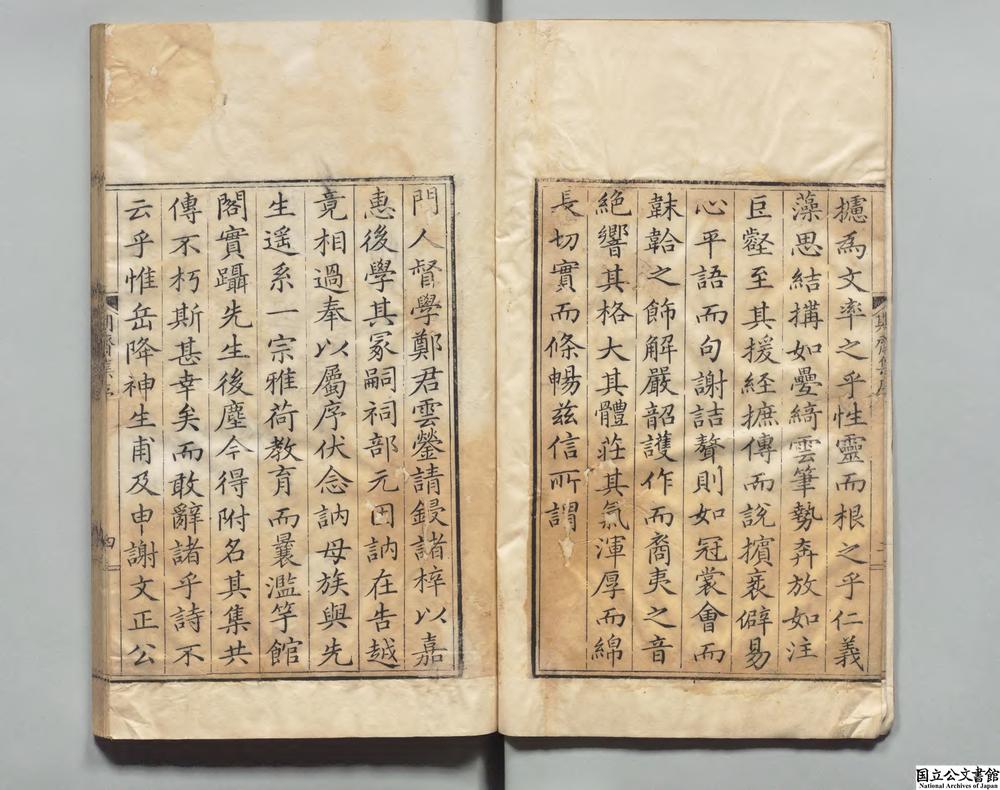 攄為文率之乎性靈而根之乎仁義
藻思結搆如疊綺雲筆勢奔放如注
巨壑至其援経摭傳而說擯衺僻易
心平語而句謝詰聱則如冠裳會而
韎韐之飾解嚴韶頀作而裔夷之音
絶響其格大其體莊其氣渾厚而綿
長切實而條暢茲信所謂
集序
門人督學鄭君雲鎣請鋟諸梓以嘉
惠後學其冢嗣祠部元因訥在告越
竟相過奉以屬序伏念訥母族與先
生遥系一宗雅荷教育而曩濫竽館
閣實躡先生後塵今得附名其集共
傳不朽斯甚幸矣而敢辭諸乎詩不
云乎惟岳降神生甫及申謝文正公
齋集序
四
国立公文書館
National Archives of Japan